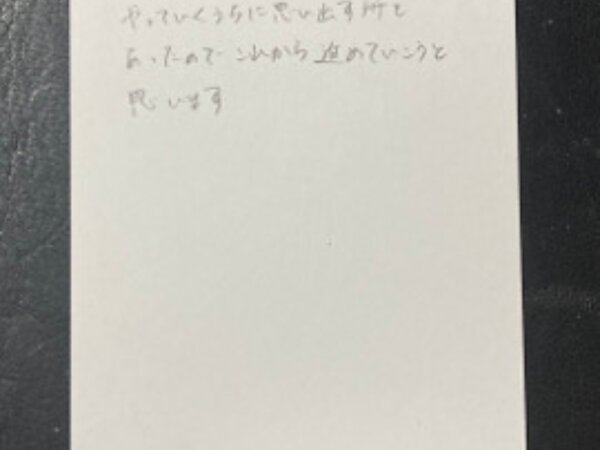 やっていくうちに思い出す所も
あったので これから進めていこうと
思います